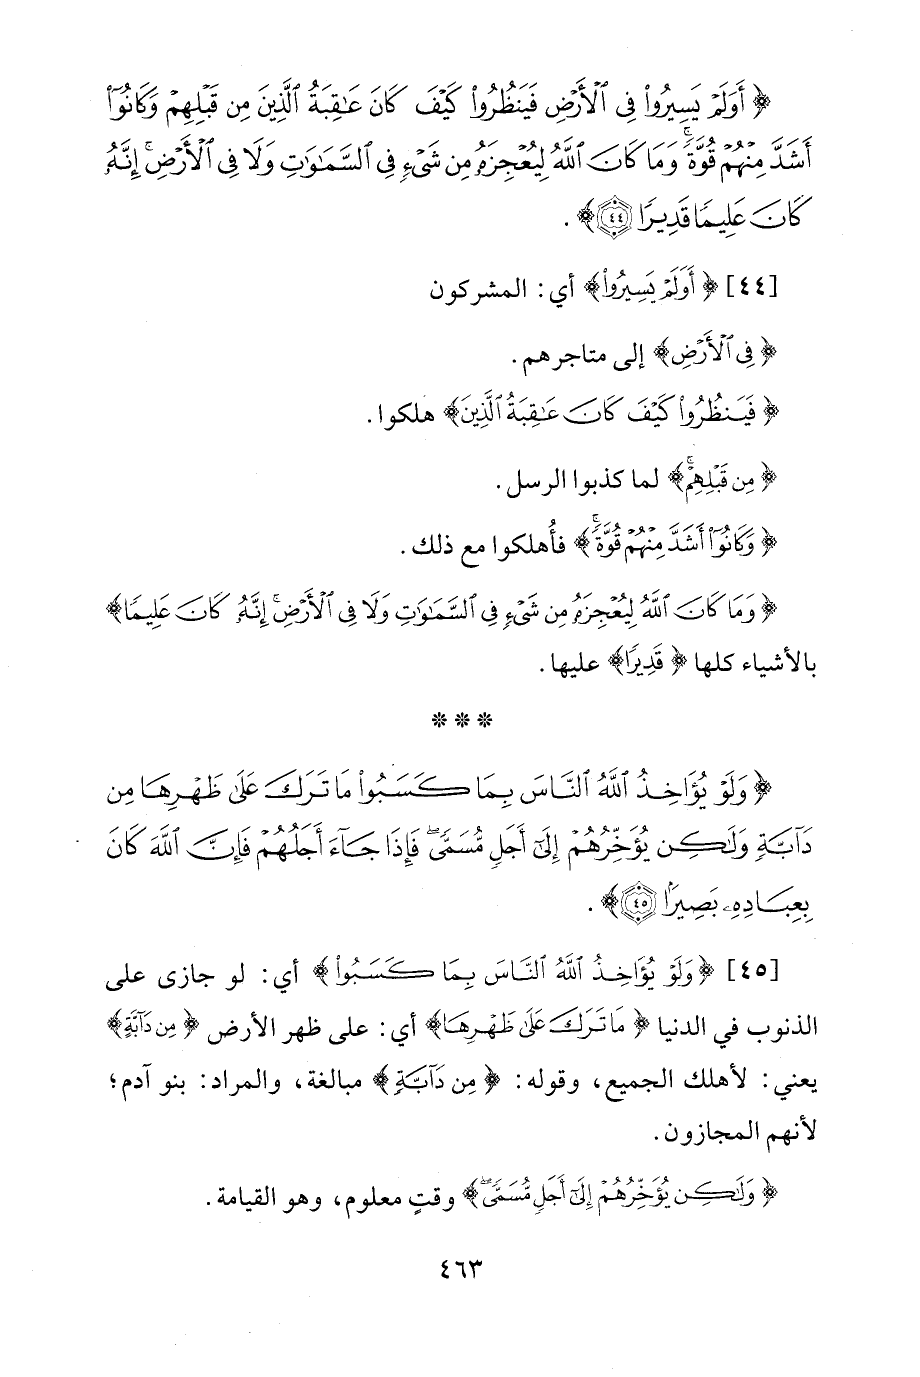 ﴿ أَوَلَمْ يَسِيرُوا۟ فِى ٱلْأَرْضِ فَيَنظُرُوا۟ كَيْفَ كَانَ عَٰقِبَةُ ٱلَّذِينَ مِن قَبْلِهِمْ وَكَانُوٓا۟
أَشَدَّ مِنْهُمْ قُوَّةً ۚ وَمَا كَانَ ٱللَّهُ لِيُعْجِزَهُۥ مِن شَىْءٍ فِى ٱلسَّمَٰوَٰتِ وَلَا فِى ٱلْأَرْضِ ۚ إِنَّهُۥ
كَانَ عَلِيمًا قَدِيرًا ٤٤ ﴾ .
[٤٤] ﴿ أَوَلَمْ يَسِيرُوا۟ ﴾ أي: المشركون
﴿ فِى ٱلْأَرْضِ ﴾ إلى متاجرهم .
﴿ فَيَنظُرُوا۟ كَيْفَ كَانَ عَٰقِبَةُ ٱلَّذِينَ ﴾ هلكوا .
﴿ مِن قَبْلِهِمْ ۚ ﴾ لما كذبوا الرسل .
﴿ وَكَانُوٓا۟ أَشَدَّ مِنْهُمْ قُوَّةً ۚ ﴾ فأُهلكوا مع ذلك .
﴿ وَمَا كَانَ ٱللَّهُ لِيُعْجِزَهُۥ مِن شَىْءٍ فِى ٱلسَّمَٰوَٰتِ وَلَا فِى ٱلْأَرْضِ ۚ إِنَّهُۥ كَانَ عَلِيمًا ﴾
بالأشياء كلها ﴿ قَدِيرًا ﴾ عليها .
* * *
﴿ وَلَوْ يُؤَاخِذُ ٱللَّهُ ٱلنَّاسَ بِمَا كَسَبُوا۟ مَا تَرَكَ عَلَىٰ ظَهْرِهَا مِن
دَآبَّةٍ وَلَٰكِن يُؤَخِّرُهُمْ إِلَىٰٓ أَجَلٍ مُّسَمًّى ۖ فَإِذَا جَآءَ أَجَلُهُمْ فَإِنَّ ٱللَّهَ كَانَ
بِعِبَادِهِۦ بَصِيرًۢا ٤٥ ﴾ .
[٤٥] ﴿ وَلَوْ يُؤَاخِذُ ٱللَّهُ ٱلنَّاسَ بِمَا كَسَبُوا۟ ﴾ أي: لو جازى على
الذنوب في الدنيا ﴿ مَا تَرَكَ عَلَىٰ ظَهْرِهَا ﴾ أي: على ظهر الأرض ﴿ مِن دَآبَّةٍ ﴾
يعني: لأهلك الجميع، وقوله: ﴿ مِن دَآبَّةٍ ﴾ مبالغة، والمراد: بنو آدم؛
لأنهم المجازون .
﴿ وَلَٰكِن يُؤَخِّرُهُمْ إِلَىٰٓ أَجَلٍ مُّسَمًّى ۖ ﴾ وقتٍ معلوم، وهو القيامة .
٤٦٣